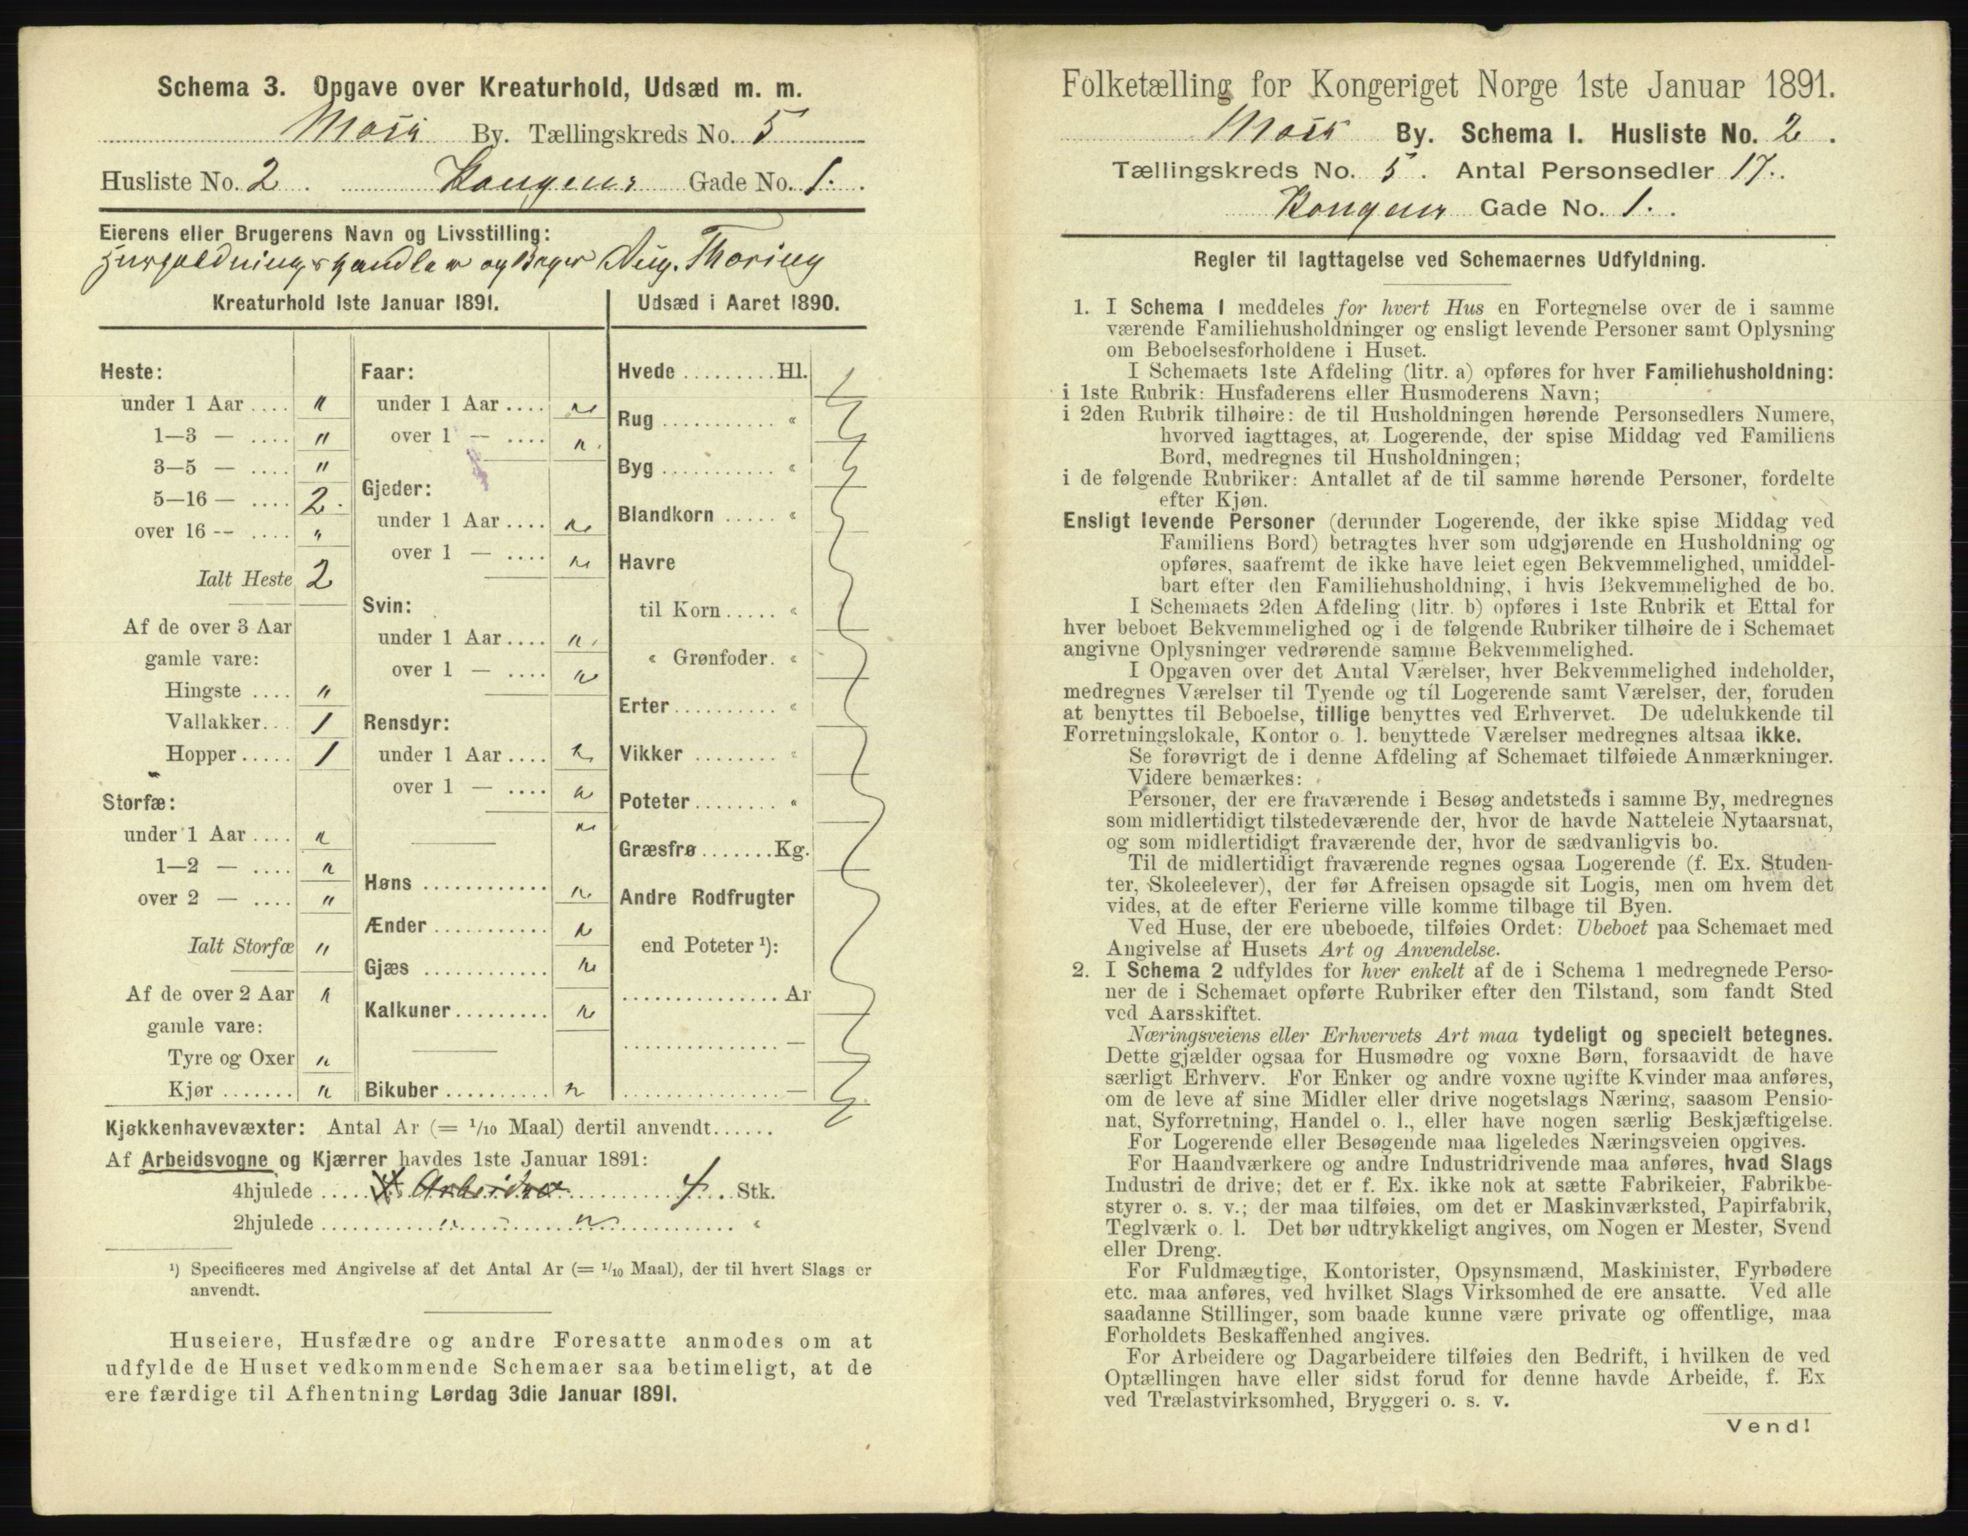 Schema 3. Opgave over Kreaturhold, Udsæd m. m.
Moss By. Tællingskreds No. 5
Husliste No. 2. Kongens Gade No. 1.
Eierens eller Brugerens Navn og Livsstilling:
og Bager Aug. Thoring
Kreaturhold 1ste Januar 1891.
Heste:
under 1 Aar .... "
1—3 — .... "
3—5 — .... "
5—16 — .... 2.
over 16 — .... "
Ialt Heste 2
Af de over 3 Aar
gamle vare:
Hingste .... "
Vallakker... 1
Hopper..... 1
Storfæ:
under 1 Aar .... "
1—2 — .... "
over 2 — .... "
Ialt Storfæ "
Af de over 2 Aar "
gamle vare:
Tyre og Oxer "
Kjør ....... "
Faar:
under 1 Aar .... "
over 1 — .... "
Gjeder:
under 1 Aar .... "
over 1 — .... "
Svin:
under 1 Aar .... "
over 1 — .... "
Rensdyr:
under 1 Aar .... "
over 1 — .... "
"
Høns ............ "
Ænder ........... "
Gjæs ............ "
Kalkuner ......... "
Bikuber .......... "
Udsæd i Aaret 1890.
Hvede ......... Hl.
Rug ........... «
Byg ........... «
Blandkorn ..... «
Havre
til Korn ..... «
« Grønfoder. «
Erter .......... «
Vikker ........ «
Poteter ........ «
Græsfrø ....... Kg.
Andre Rodfrugter
end Poteter ¹):
............... Ar
............... —
............... —
Kjøkkenhavevæxter: Antal Ar (= 1/10 Maal) dertil anvendt......
Af Arbeidsvogne og Kjærrer havdes 1ste Januar 1891:
4hjulede ..... 4 Stk.
2hjulede ..... " " «
¹) Specificeres med Angivelse af det Antal Ar (= 1/10 Maal), der til hvert Slags er
anvendt.
Huseiere, Husfædre og andre Foresatte anmodes om at
udfylde de Huset vedkommende Schemaer saa betimeligt, at de
ere færdige til Afhentning Lørdag 3die Januar 1891.
Folketælling for Kongeriget Norge 1ste Januar 1891.
Moss By. Schema I. Husliste No. 2.
Tællingskreds No. 5. Antal Personsedler 17.
Kongens Gade No. 1.
Regler til Iagttagelse ved Schemaernes Udfyldning.
1. I Schema 1 meddeles for hvert Hus en Fortegnelse over de i samme
værende Familiehusholdninger og ensligt levende Personer samt Oplysning
om Beboelsesforholdene i Huset.
I Schemaets 1ste Afdeling (litr. a) opføres for hver Familiehusholdning:
i 1ste Rubrik: Husfaderens eller Husmoderens Navn;
i 2den Rubrik tilhøire: de til Husholdningen hørende Personsedlers Numere,
hvorved iagttages, at Logerende, der spise Middag ved Familiens
Bord, medregnes til Husholdningen;
i de følgende Rubriker: Antallet af de til samme hørende Personer, fordelte
efter Kjøn.
Ensligt levende Personer (derunder Logerende, der ikke spise Middag ved
Familiens Bord) betragtes hver som udgjørende en Husholdning og
opføres, saafremt de ikke have leiet egen Bekvemmelighed, umiddel-
bart efter den Familiehusholdning, i hvis Bekvemmelighed de bo.
I Schemaets 2den Afdeling (litr. b) opføres i 1ste Rubrik et Ettal for
hver beboet Bekvemmelighed og i de følgende Rubriker tilhøire de i Schemaet
angivne Oplysninger vedrørende samme Bekvemmelighed.
I Opgaven over det Antal Værelser, hver Bekvemmelighed indeholder,
medregnes Værelser til Tyende og til Logerende samt Værelser, der, foruden
at benyttes til Beboelse, tillige benyttes ved Erhvervet. De udelukkende til
Forretningslokale, Kontor o. l. benyttede Værelser medregnes altsaa ikke.
Se forøvrigt de i denne Afdeling af Schemaet tilføiede Anmærkninger.
Videre bemærkes:
Personer, der ere fraværende i Besøg andetsteds i samme By, medregnes
som midlertidigt tilstedeværende der, hvor de havde Natteleie Nytaarsnat,
og som midlertidigt fraværende der, hvor de sædvanligvis bo.
Til de midlertidigt fraværende regnes ogsaa Logerende (f. Ex. Studen-
ter, Skoleelever), der før Afreisen opsagde sit Logis, men om hvem det
vides, at de efter Ferierne ville komme tilbage til Byen.
Ved Huse, der ere ubeboede, tilføies Ordet: Ubeboet paa Schemaet med
Angivelse af Husets Art og Anvendelse.
2. I Schema 2 udfyldes for hver enkelt af de i Schema 1 medregnede Perso-
ner de i Schemaet opførte Rubriker efter den Tilstand, som fandt Sted
ved Aarsskiftet.
Næringsveiens eller Erhvervets Art maa tydeligt og specielt betegnes.
Dette gjælder ogsaa for Husmødre og voxne Børn, forsaavidt de have
særligt Erhverv. For Enker og andre voxne ugifte Kvinder maa anføres,
om de leve af sine Midler eller drive nogetslags Næring, saasom Pensio-
nat, Syforretning, Handel o. l., eller have nogen særlig Beskjæftigelse.
For Logerende eller Besøgende maa ligeledes Næringsveien opgives.
For Haandværkere og andre Industridrivende maa anføres, hvad Slags
Industri de drive; det er f. Ex. ikke nok at sætte Fabrikeier, Fabrikbe-
styrer o. s. v.; der maa tilføies, om det er Maskinværksted, Papirfabrik,
Teglværk o. l. Det bør udtrykkeligt angives, om Nogen er Mester, Svend
eller Dreng.
For Fuldmægtige, Kontorister, Opsynsmænd, Maskinister, Fyrbødere
etc. maa anføres, ved hvilket Slags Virksomhed de ere ansatte. Ved alle
saadanne Stillinger, som baade kunne være private og offentlige, maa
Forholdets Beskaffenhed angives.
For Arbeidere og Dagarbeidere tilføies den Bedrift, i hvilken de ved
Optællingen have eller sidst forud for denne havde Arbeide, f. Ex
ved Trælastvirksomhed, Bryggeri o. s. v.
Vend!